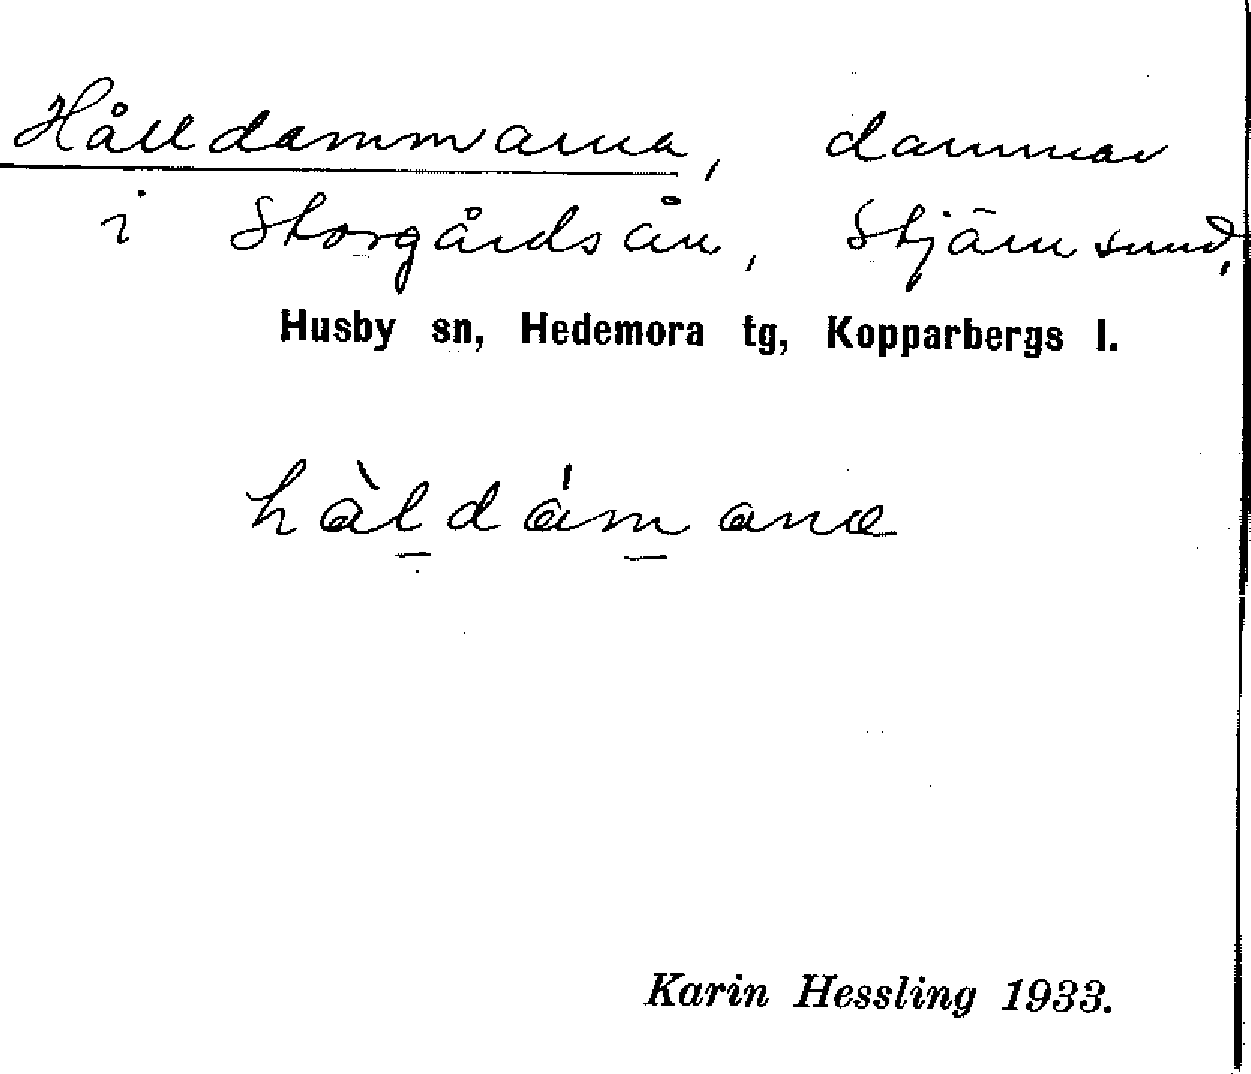 Hålldammarna, dammar
i Storgårdsån, Stjärnsund,
Husby sn, Hedemora tg, Kopparbergs l.
hàldámana
Karin Hessling 1933.